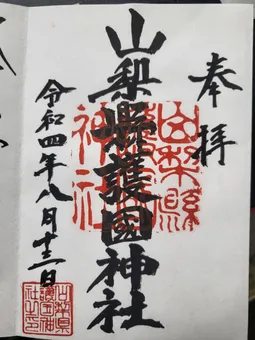 奉拝
山梨縣護國神社
令和四年八月十三日
山梨縣護國神社
山梨県護国神社之印